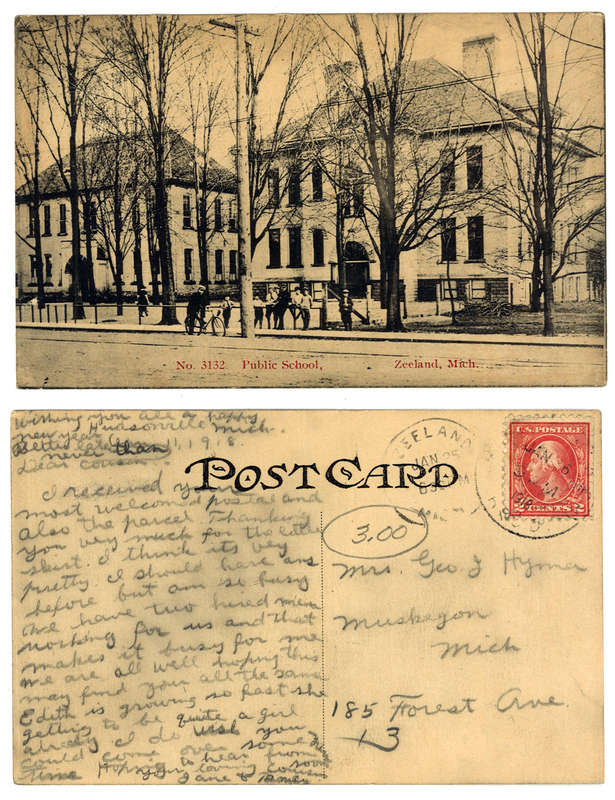 No. 3132. Public School, Zeeland, Mich.
Wishing you all a happy
new year. Hudsonville Mich.
Better late 11, 1918.
never than
Dear cousin.
I received your
most welcomed postal and
also the parcel. Thanking
you very much for the little
skirt. I think its very
pretty. I should have ans
before but am so busy
we have two hired men
working for us and that
makes it busy for me
we are all well hoping this
may find you all the same
Edith is growing so fast she
getting to be quite a girl
already I do wish you
could come over some
time Hoping to hear from
you soon
your loving cousin
Jane &
POST CARD
ZEELAND
JAN 25
U.S. POSTAGE
JAN
2 CENTS 2
3.00
Mrs. Geo J Hyma
Muskegon
Mich
185 Forest Ave.
13